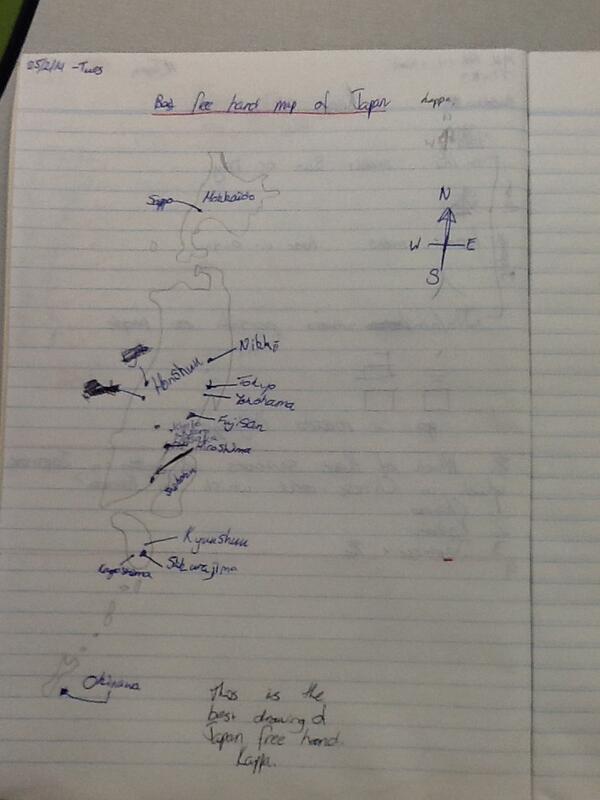 25/2/14 - Tues
Best free hand map of Japan
kappa.
Hokkaido
Sappo
N
W E
S
Nikko
Honshuu
Tokyo
Yokohama
Fuji San
Kyoto
Hiroshima
Shikoku
Kyuushuu
Kagoshima
Sakurajima
Okinawa
This is the
best drawing of
Japan free hand.
Kappa.